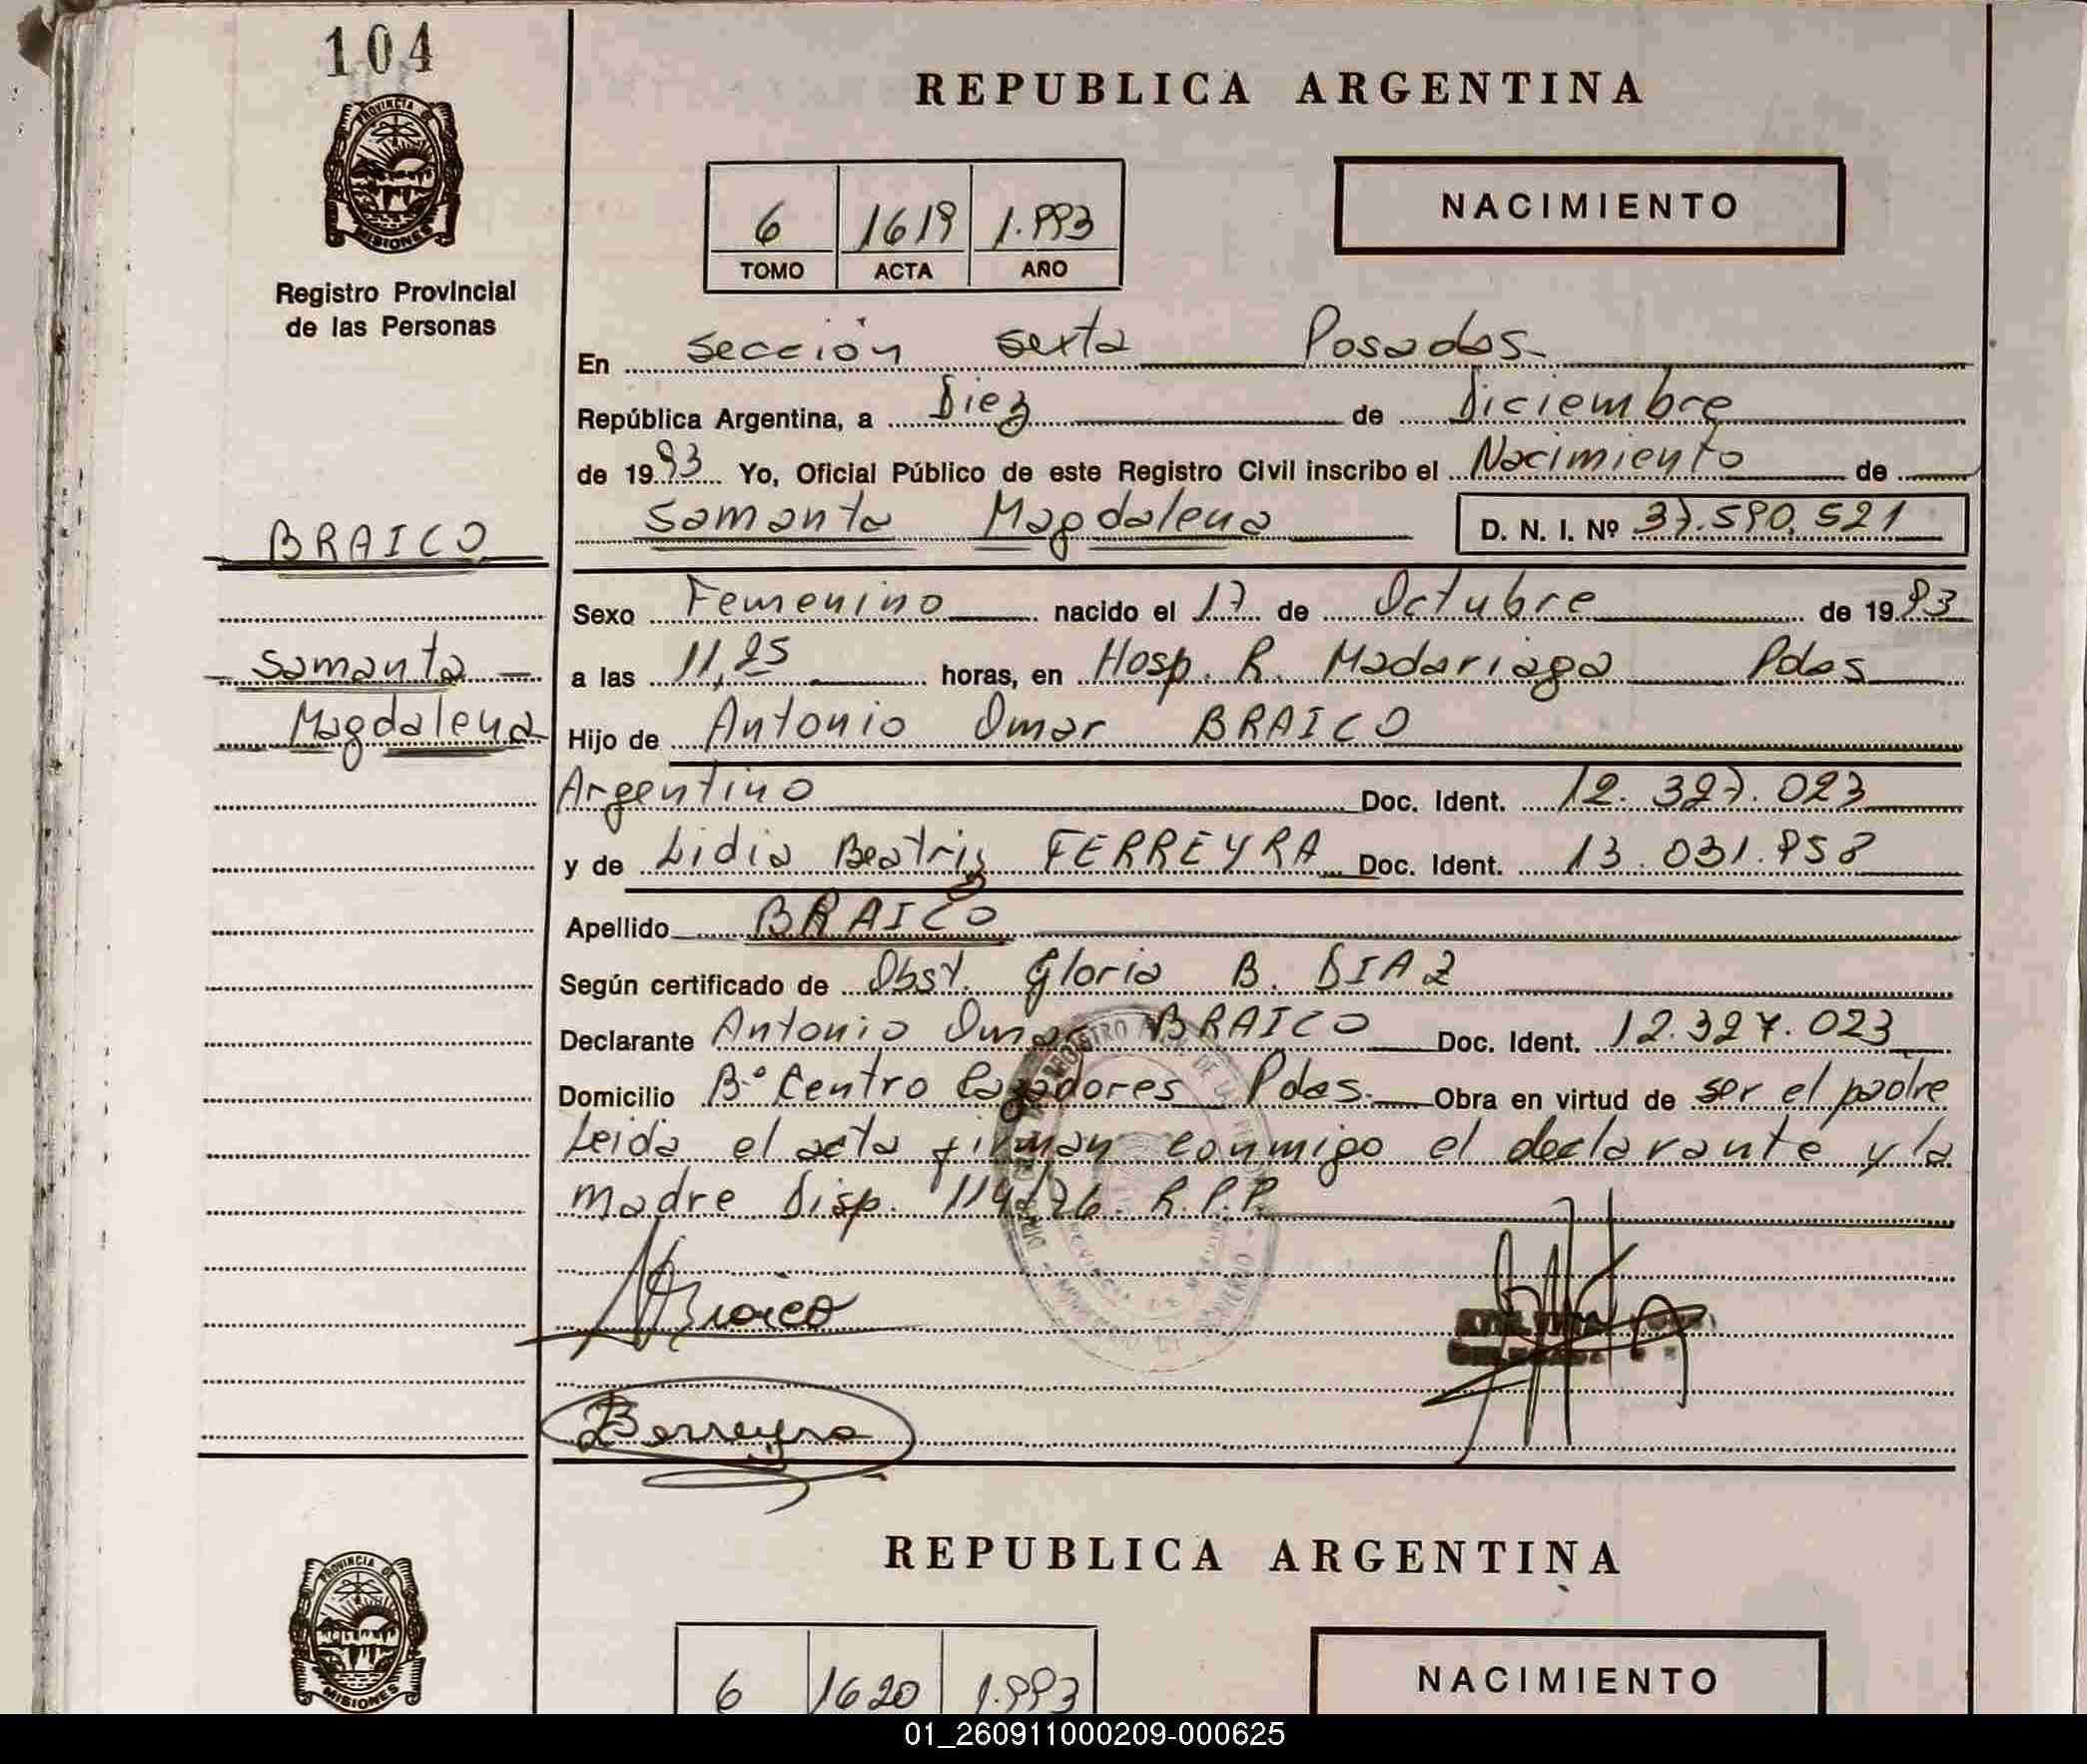 104
PROVINCIA DE
MISIONES
Registro Provincial
de las Personas
REPUBLICA ARGENTINA
6 1619 1.993
TOMO ACTA AÑO
NACIMIENTO
En sección sexta Posadas
República Argentina, a Diez de Diciembre
de 1993 Yo, Oficial Público de este Registro Civil inscribo el Nacimiento de
Samanta Magdalena D. N. I. Nº 37.590.521
BRAICO
Samanta
Magdalena
Sexo Femenino nacido el 17 de Octubre de 1993
a las 11,25 horas, en Hosp. R. Madariaga Pdas
Hijo de Antonio Omar BRAICO
Argentino Doc. Ident. 12.327.023
y de Lidia Beatriz FERREYRA Doc. Ident. 13.031.958
Apellido BRAICO
Según certificado de Obst. Gloria B. DIAZ
Declarante Antonio Omar BRAICO Doc. Ident. 12.327.023
Domicilio Bº Centro Cazadores Pdas. Obra en virtud de ser el padre
Leida el acta firman conmigo el declarante y la
madre Disp. 114/76. R.P.P.
ABraico
Berreyra
PROVINCIA DE
MISIONES
REPUBLICA ARGENTINA
6 1620 1.993
NACIMIENTO
01_260911000209-000625